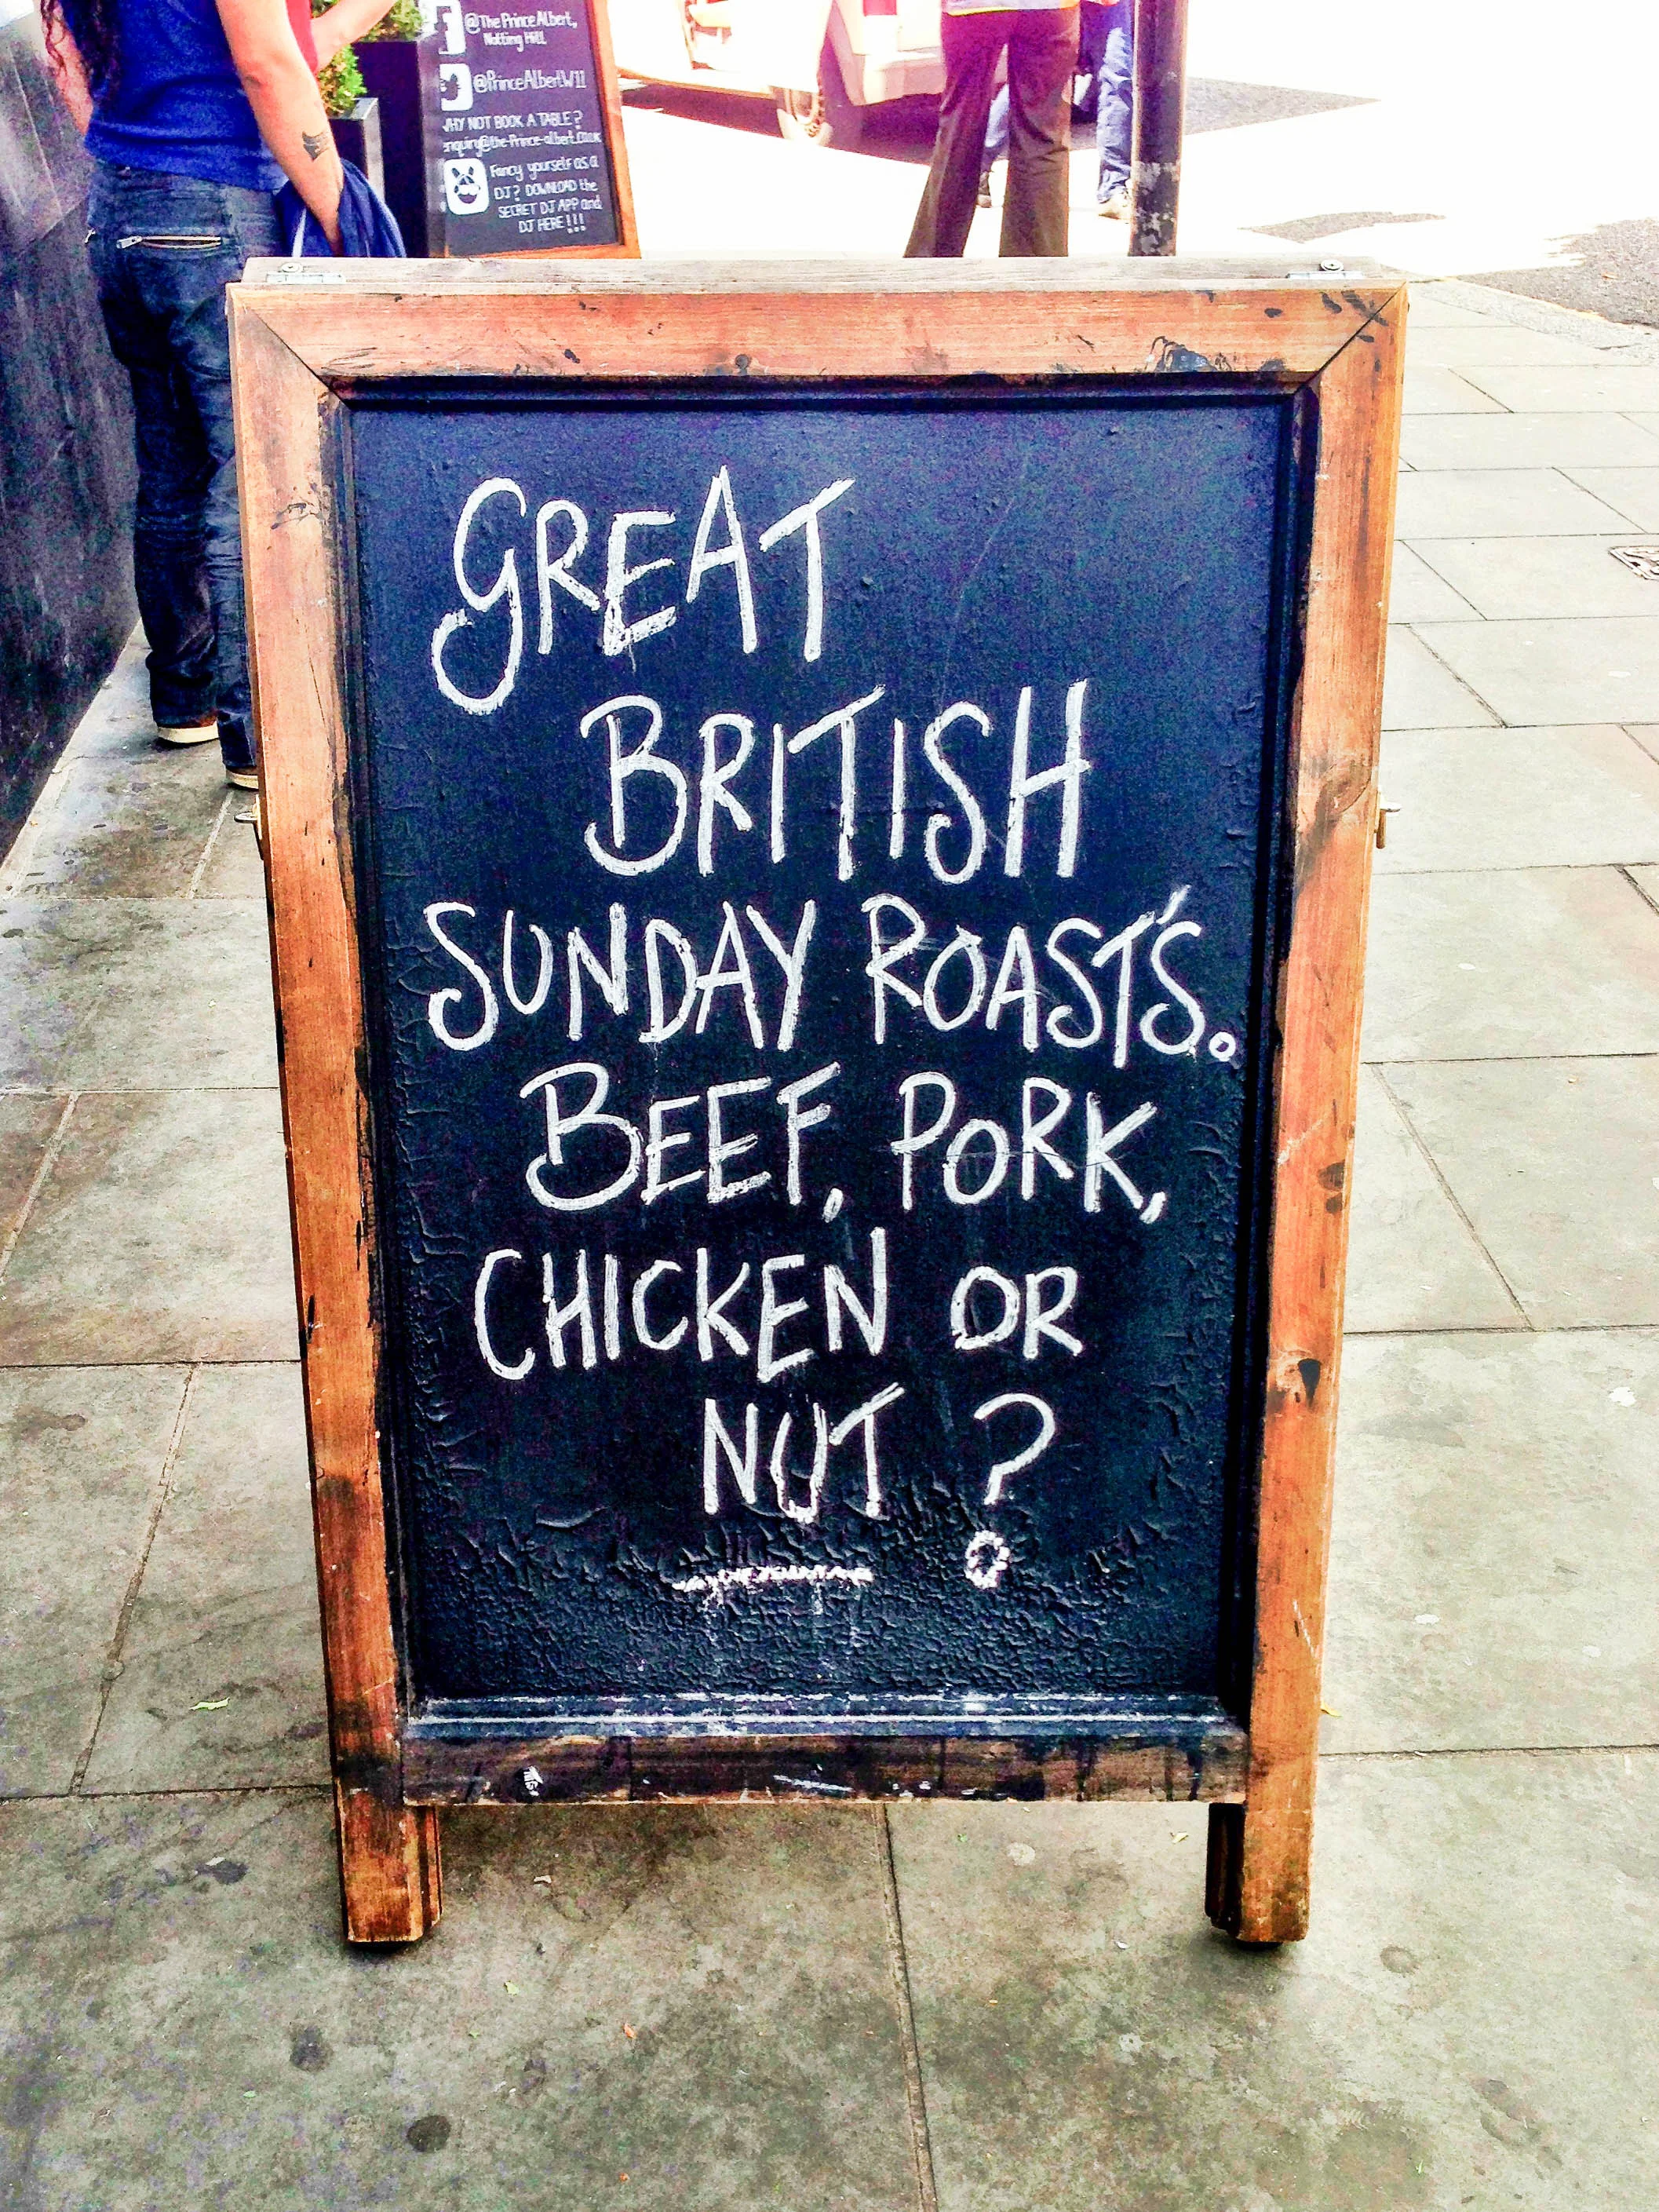 @The Prince Albert,
Notting Hill
@PrinceAlbertW11
WHY NOT BOOK A TABLE?
enquiry@the-Prince-albert.co.uk
Fancy yourself as a
DJ? DOWNLOAD the
SECRET DJ APP and
DJ HERE!!!
GREAT
BRITISH
SUNDAY ROAST'S.
BEEF, PORK,
CHICKEN OR
NUT?